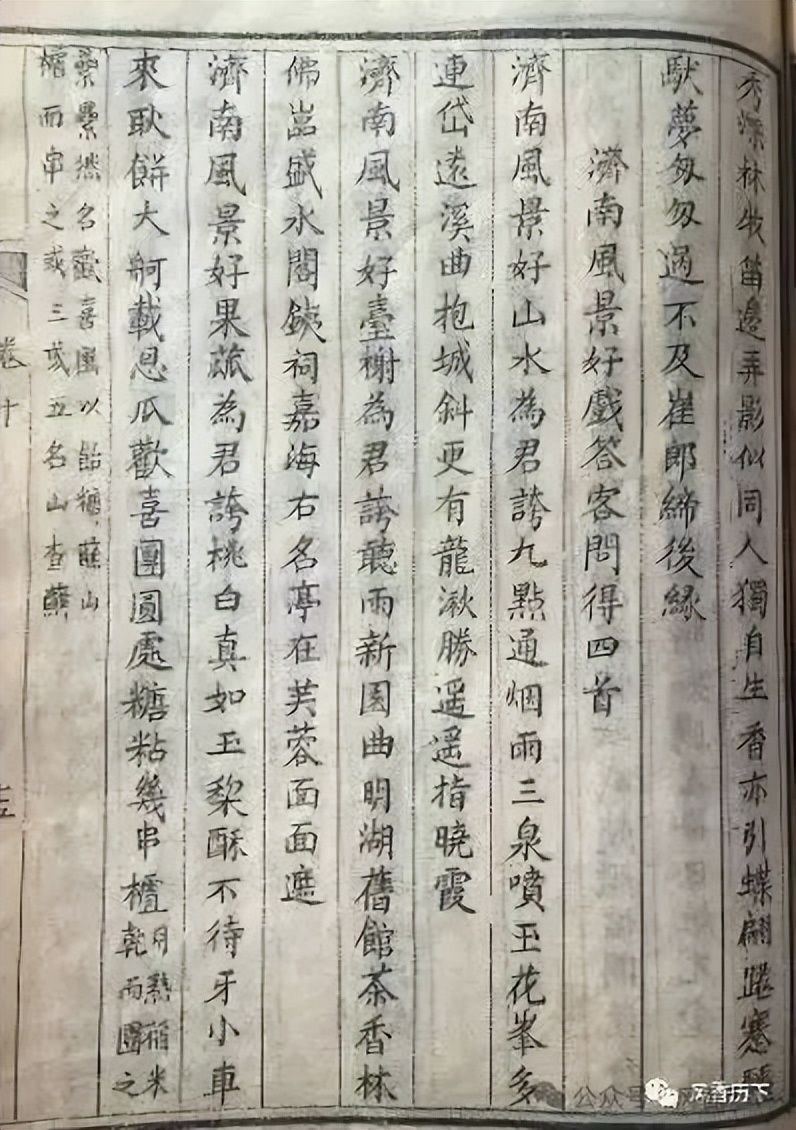 秀深林牧笛邊弄影似同人獨自生香亦引蝶翩蹇
馱夢匆匆過不及崔郎締後緣
濟南風景好戲答客問得四首
濟南風景好山水為君誇九點通烟雨三泉噴玉花峯多
連岱遠溪曲抱城斜更有龍湫勝遥遥指曉霞
濟南風景好臺榭為君誇聽雨新園曲明湖舊館茶香林
佛嵓盛水閣銕祠嘉海右名亭在芙蓉面面遮
濟南風景好果蔬為君誇桃白真如玉梨酥不待牙小車
來耿餅大舸載恩瓜歡喜團圓處糖粘幾串樝
用熟稻米
乾而團之
纍纍然名歡喜團以飴糖蘸山
樝而串之或三或五名山查蘸
卷十
公众号
香历下